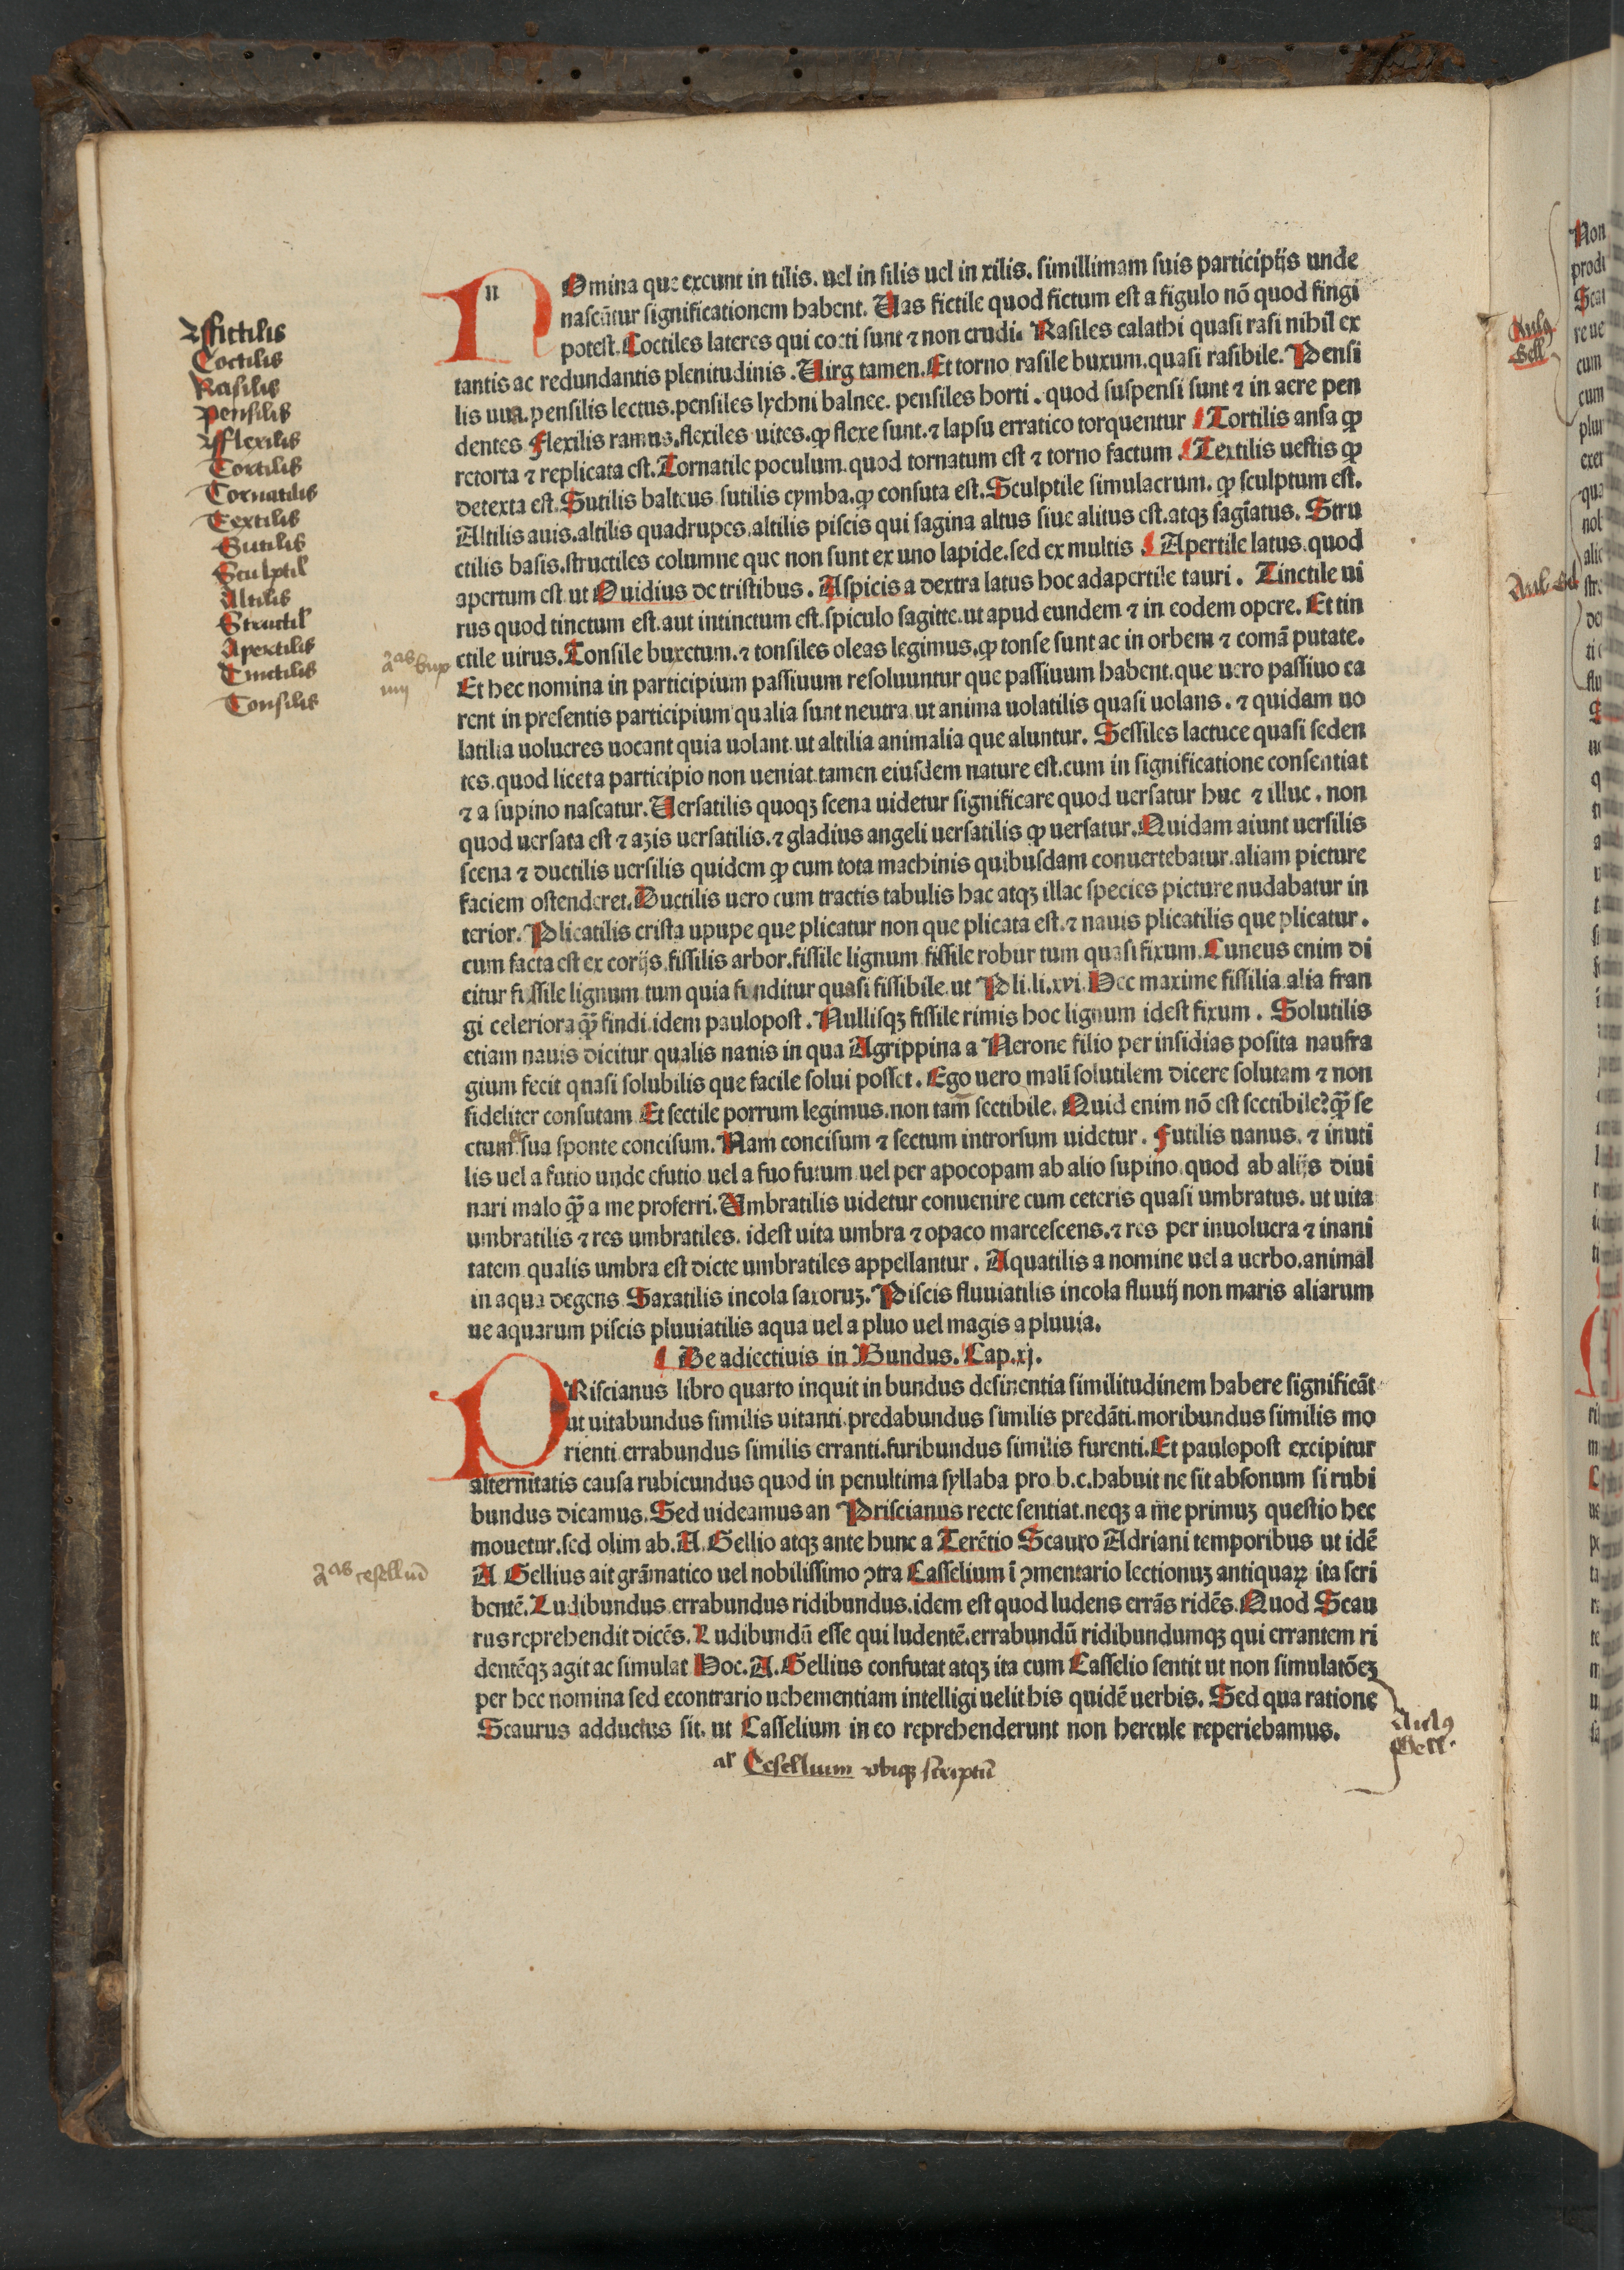 NOmina que exeunt in tilis. uel in silis uel in xilis. simillimam suis participijs unde
nascūtur significationem habent. Uas fictile quod fictum est a figulo nō quod fingi
potest. Coctiles lateres qui cocti sunt ⁊ non crudi. Rasiles calathi quasi rasi nihil ex
tantis ac redundantis plenitudinis. Uirg tamen. Et torno rasile buxum. quasi rasibile. Pensi
lis uua. pensilis lectus. pensiles lychni balnee. pensiles horti. quod suspensi sunt ⁊ in aere pen
dentes Flexilis ramus. flexiles uites. ꝙ flexe sunt. ⁊ lapsu erratico torquentur Tortilis ansa ꝙ
retorta ⁊ replicata est. Tornatile poculum. quod tornatum est ⁊ torno factum. Textilis uestis ꝙ
detexta est. Sutilis balteus. sutilis cymba. ꝙ consuta est. Sculptile simulacrum. ꝙ sculptum est.
Altilis auis. altilis quadrupes. altilis piscis qui sagina altus siue alitus est. atqꝫ sagīatus. Stru
ctilis basis. structiles columne que non sunt ex uno lapide. sed ex multis. Apertile latus. quod
apertum est ut Ouidius de tristibus. Aspicis a dextra latus hoc adapertile tauri. Tinctile ui
rus quod tinctum est. aut intinctum est. spiculo sagitte. ut apud eundem ⁊ in eodem opere. Et tin
ctile uirus. Tonsile buxetum. ⁊ tonsiles oleas legimus. ꝙ tonse sunt ac in orbem ⁊ comā putate.
Et hec nomina in participium passiuum resoluuntur que passiuum habent. que uero passiuo ca
rent in presentis participium qualia sunt neutra. ut anima uolatilis quasi uolans. ⁊ quidam uo
latilia uolucres uocant quia uolant. ut altilia animalia que aluntur. Sessiles lactuce quasi seden
tes. quod licet a participio non ueniat. tamen eiusdem nature est. cum in significatione consentiat
⁊ a supino nascatur. Uersatilis quoqꝫ scena uidetur significare quod uersatur huc ⁊ illuc. non
quod uersata est ⁊ axis uersatilis. ⁊ gladius angeli uersatilis ꝙ uersatur. Quidam aiunt uersilis
scena ⁊ ductilis uersilis quidem ꝙ cum tota machinis quibusdam conuertebatur. aliam picture
faciem ostenderet. Ductilis uero cum tractis tabulis hac atqꝫ illac species picture nudabatur in
terior. Plicatilis crista upupe que plicatur non que plicata est. ⁊ nauis plicatilis que plicatur.
cum facta est ex corijs. fissilis arbor. fissile lignum fissile robur tum quasi fixum. Cuneus enim di
citur fissile lignum tum quia finditur quasi fissibile. ut Pli. li. xvi. Hec maxime fissilia alia fran
gi celeriora qᷓ findi. idem paulopost. Nullisqꝫ fissile rimis hoc lignum idest fixum. Solutilis
etiam nauis dicitur qualis nauis in qua Agrippina a Nerone filio per insidias posita naufra
gium fecit quasi solubilis que facile solui posset. Ego uero malī solutilem dicere solutam ⁊ non
fideliter consutam Et sectile porrum legimus. non tam̄ sectibile. Quid enim nō est sectibile? qᷓ se
ctum sua sponte concisum. Nam concisum ⁊ sectum introrsum uidetur. Futilis uanus. ⁊ inuti
lis uel a futio unde effutio uel a fuo futum uel per apocopam ab alio supino. quod ab alijs diui
nari malo qᷓ a me proferri. Umbratilis uidetur conuenire cum ceteris quasi umbratus. ut uita
umbratilis ⁊ res umbratiles. idest uita umbra ⁊ opaco marcescens. ⁊ res per inuolucra ⁊ inani
tatem qualis umbra est dicte umbratiles appellantur. Aquatilis a nomine uel a uerbo. animal
in aqua degens Saxatilis incola saxoruꝫ. Piscis fluuiatilis incola fluuij non maris aliarum
ue aquarum piscis pluuiatilis aqua uel a pluo uel magis a pluuia.
De adiectiuis in Bundus. Cap. xj.
PRiscianus libro quarto inquit in bundus desinentia similitudinem habere significāt
ut uitabundus similis uitanti. predabundus similis predāti. moribundus similis mo
rienti errabundus similis erranti. furibundus similis furenti. Et paulopost excipitur
alternitatis causa rubicundus quod in penultima syllaba pro. b. c. habuit ne sit absonum si rubi
bundus dicamus. Sed uideamus an Priscianus recte sentiat. neqꝫ a me primuꝫ questio hec
mouetur. sed olim ab. A. Gellio atqꝫ ante hunc a Terētio Scauro Adriani temporibus ut idē
A. Gellius ait grāmatico uel nobilissimo ↄtra Casselium ī ↄmentario lectionuꝫ antiquaꝝ ita scri
bentē. Ludibundus. errabundus ridibundus. idem est quod ludens errās ridēs. Quod Scau
rus reprehendit dicēs. Ludibundū esse qui ludentē. errabundū ridibundumqꝫ qui errantem ri
dentēqꝫ agit ac simulat Hoc. A. Gellius confutat atqꝫ ita cum Casselio sentit ut non simulatōeꝫ
per hec nomina sed econtrario uehementiam intelligi uelit his quidē uerbis. Sed qua ratione
Scaurus adductus sit. ut Casselium in eo reprehenderunt non hercule reperiebamus.
al Cesellium vbiqꝫ scriptū
ffictilis
Coctilis
Rasilis
Pensilis
fflexilis
Tortilis
Tornatilis
Textilis
Sutilis
Sculptil
Altilis
Structil
Apertilis
Tinctilis
Tonsilis
Aulꝰ
Gell.
Aulꝰ
Gell